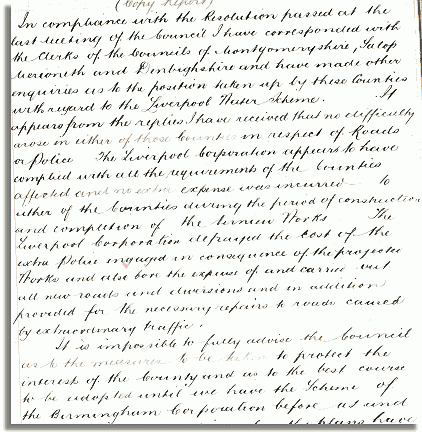 (Copy Report)
In compliance with the Resolution passed at the
last Meeting of the Council I have corresponded with
the Clerks of the Councils of Montgomeryshire, Salop
Merioneth and Denbighshire and have made other
enquiries as to the position taken up by these Counties
with regard to the Liverpool Water Scheme. It
appears from the replies I have received that no difficulty
arose in either of those Counties in respect of Roads
or Police The Liverpool Corporation appears to have
complied with all the requirements of the Counties
affected and no extra expense was incurred to
either of the Counties during the period of construction
and completion of the Works The
Liverpool Corporation defrayed the cost of the
extra Police engaged in consequence of the projected
Works and also bore the expense of and carried out
all new roads and diversions and in addition
provided for the necessary repairs to roads caused
by extraordinary traffic.
It is impossible to fully advise the Council
as to the measures to be taken to protect the
interest of the County and as to the best course
to be adopted until we have the Scheme of
the Birmingham Corporation before us and
the plans have